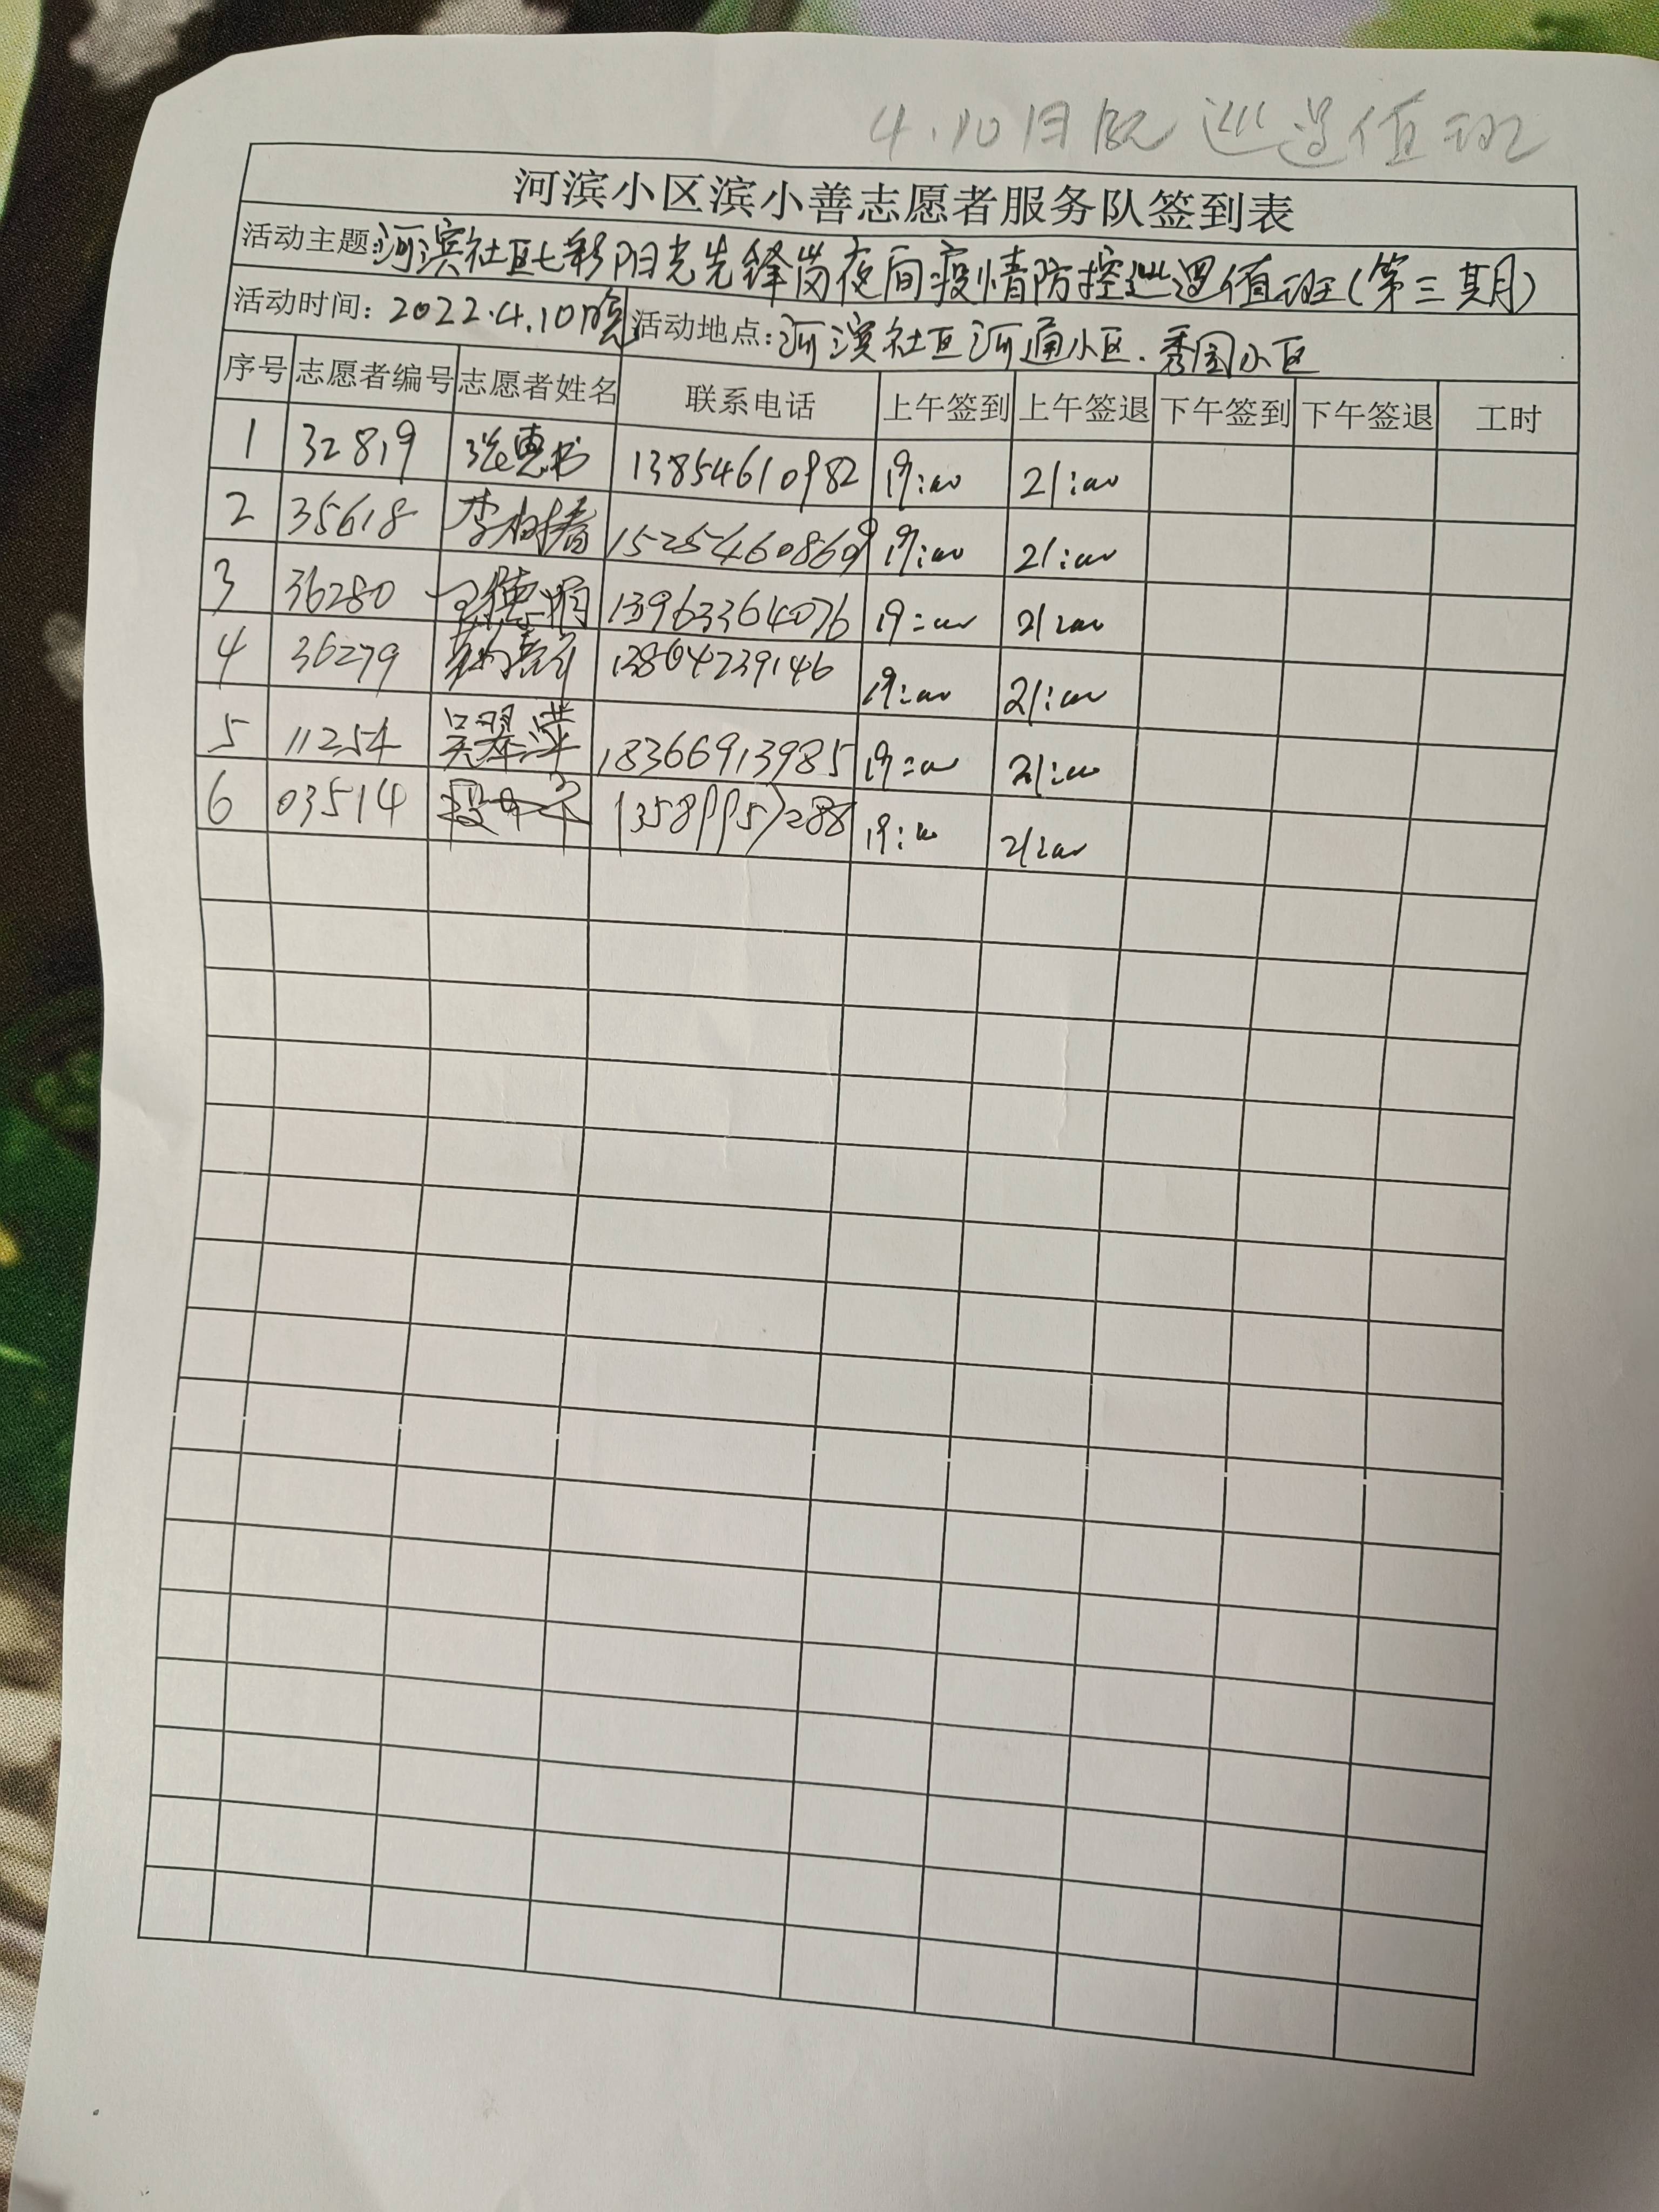 4.10日晚 巡逻值班
河滨小区滨小善志愿者服务队签到表
活动主题:河滨社区七彩阳光先锋岗夜间疫情防控巡逻值班(第三期)
活动时间: 2022.4.10晚 活动地点: 河滨社区河通小区.秀园小区
序号 志愿者编号 志愿者姓名 联系电话 上午签到 上午签退 下午签到 下午签退 工时
1 32819 张惠 13854610982 19:00 21:00
2 35618 李树春 15254460869 19:00 21:00
3 36280 王德明 13963364076 19:00 21:00
4 36279 13804239146 19:00 21:00
5 11254 吴翠萍 18366913985 19:00 21:00
6 03514 19:00 21:00